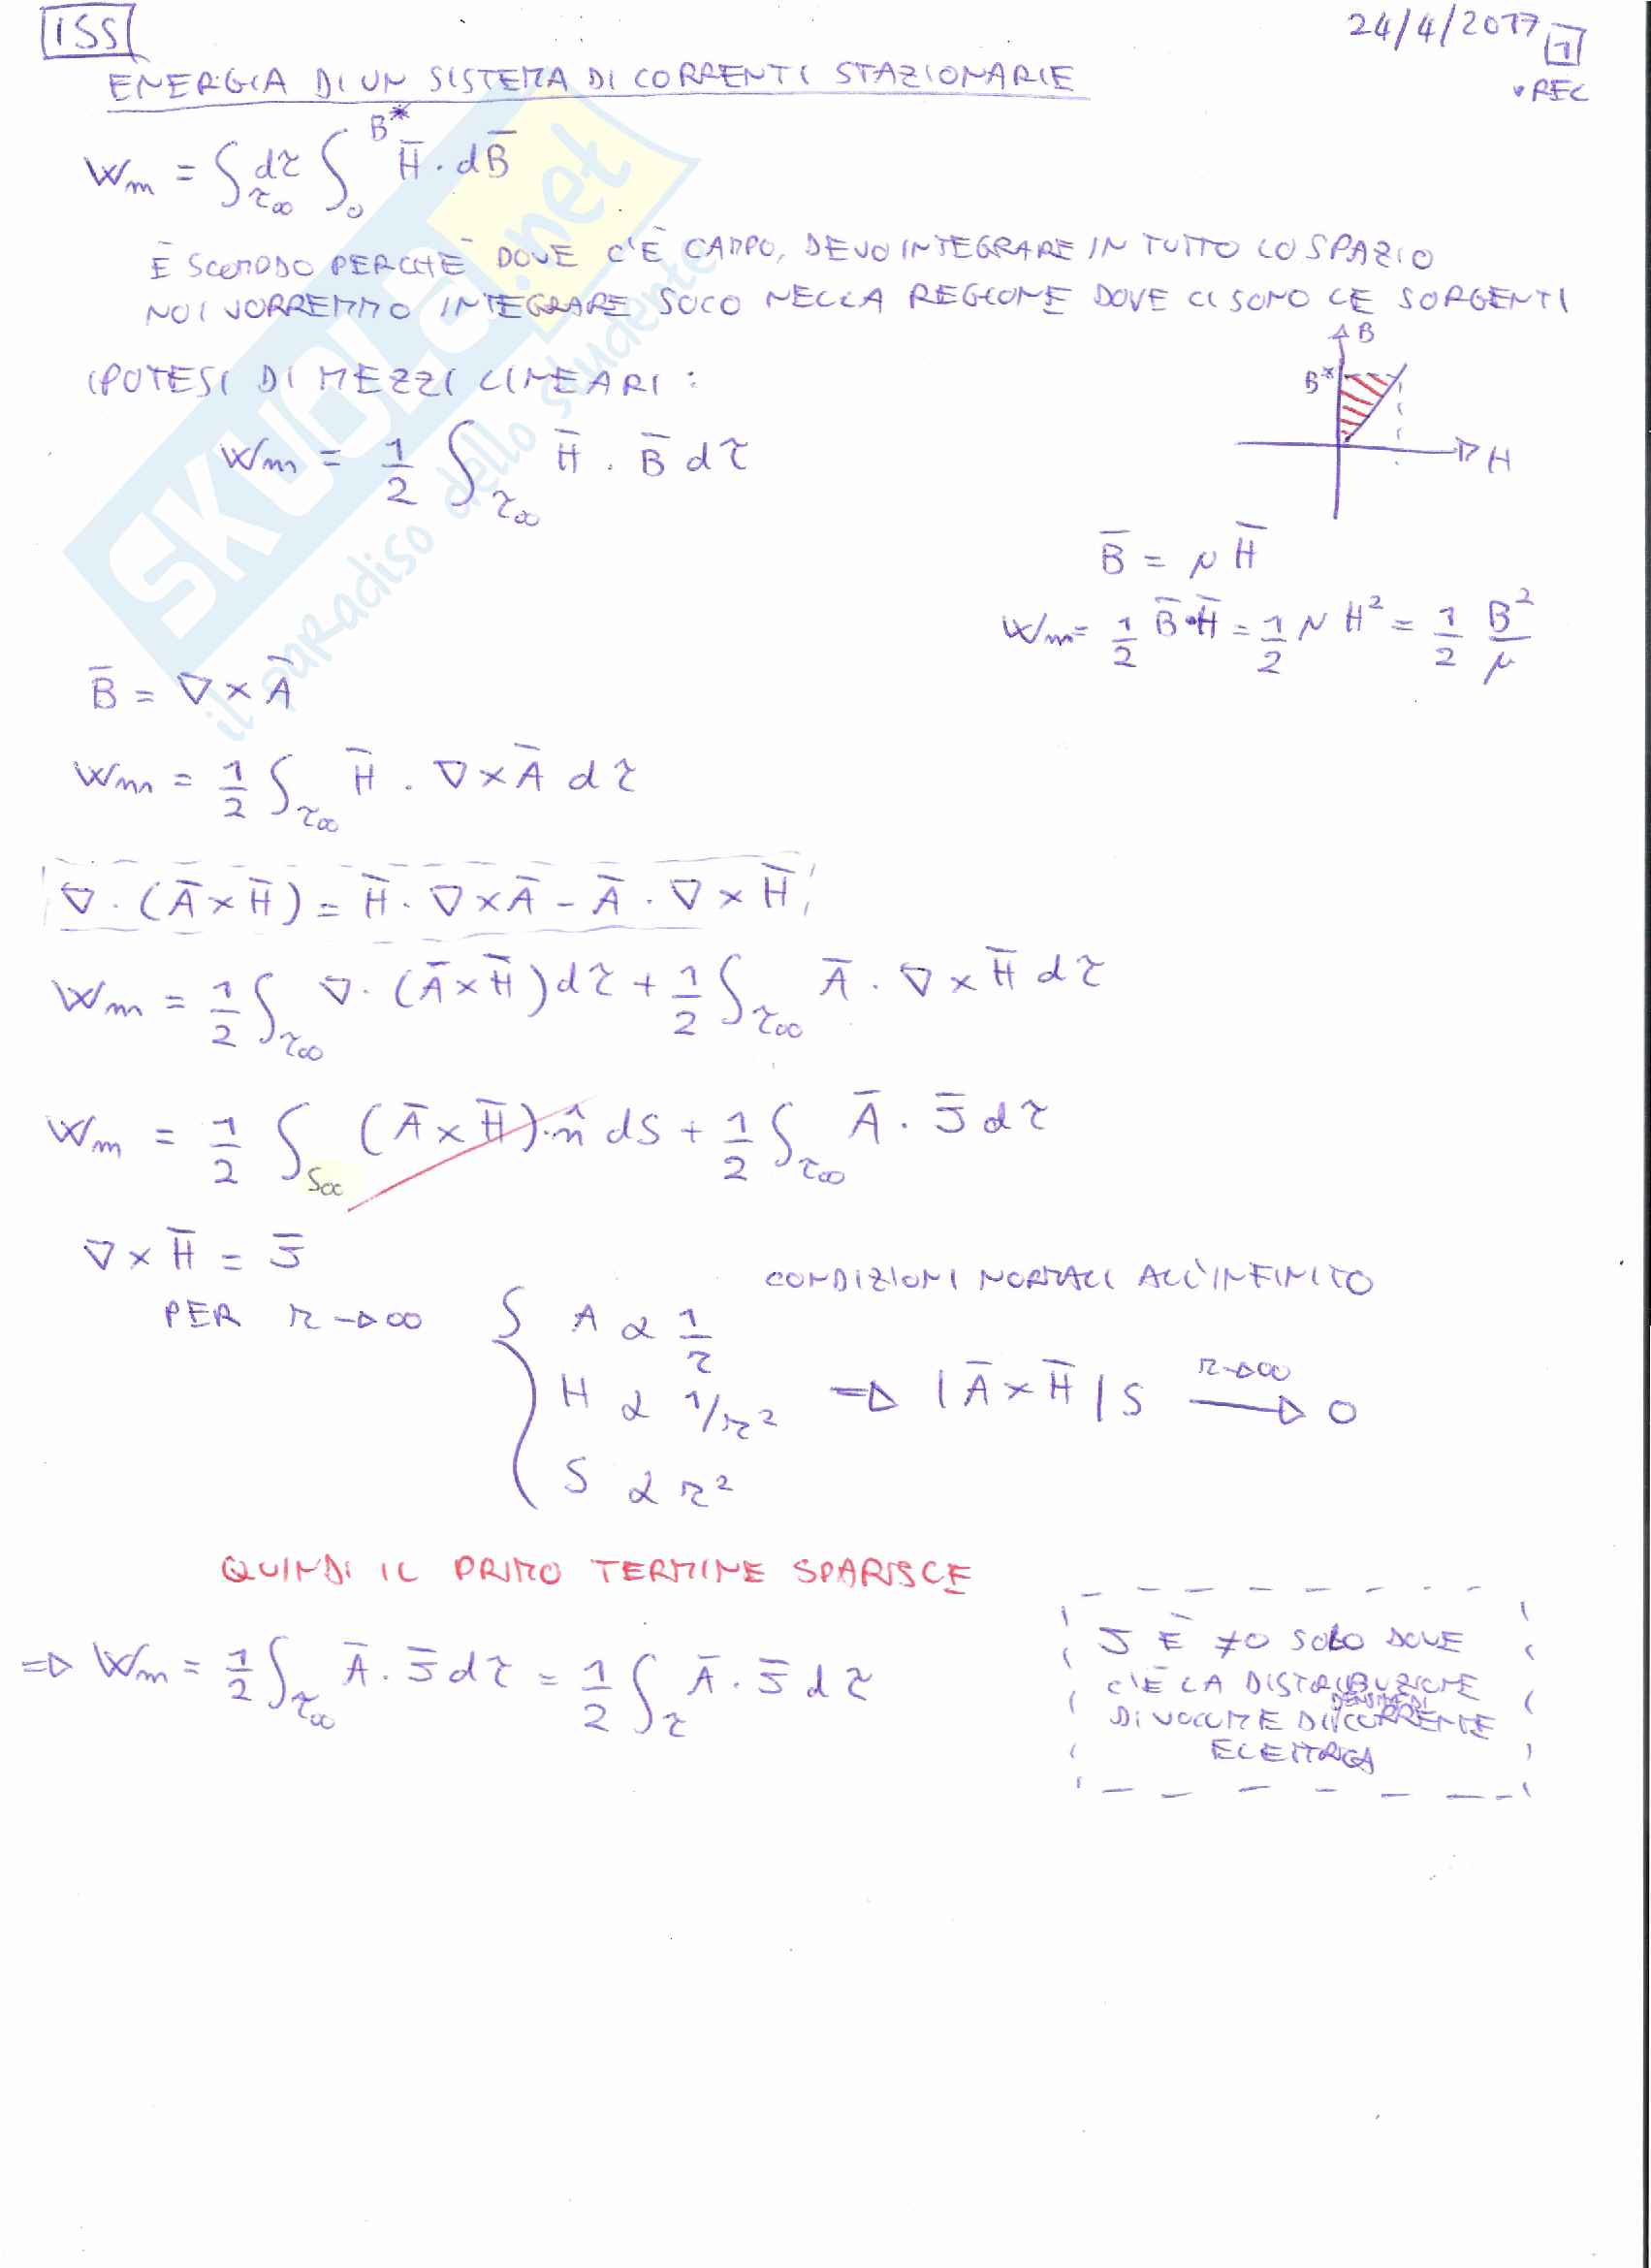 155
24/4/2017 1
• REC
ENERGIA DI UN SISTEMA DI CORRENTI STAZIONARIE
Wm = ∫τ∞ dτ ∫₀^B* H̄ · dB̄
È SCOMODO PERCHÈ DOVE C'È CAMPO, DEVO INTEGRARE IN TUTTO LO SPAZIO
NOI VORREMMO INTEGRARE SOLO NELLA REGIONE DOVE CI SONO LE SORGENTI
B
B*
H
IPOTESI DI MEZZI LINEARI :
Wm = 1/2 ∫τ∞ H̄ · B̄ dτ
B̄ = μ H̄
Wm = 1/2 B̄ · H̄ = 1/2 μ H² = 1/2 B²/μ
B̄ = ∇ × Ā
Wm = 1/2 ∫τ∞ H̄ · ∇ × Ā dτ
∇ · (Ā × H̄) = H̄ · ∇ × Ā - Ā · ∇ × H̄
Wm = 1/2 ∫τ∞ ∇ · (Ā × H̄) dτ + 1/2 ∫τ∞ Ā · ∇ × H̄ dτ
Wm = 1/2 ∫S∞ (Ā × H̄) · n̂ dS + 1/2 ∫τ∞ Ā · J̄ dτ
∇ × H̄ = J̄
CONDIZIONI NORMALI ALL'INFINITO
PER r → ∞ { A α 1/r
H α 1/r² ⇒ |Ā × H̄| S r→∞ → 0
S α r²
QUINDI IL PRIMO TERMINE SPARISCE
⇒ Wm = 1/2 ∫τ∞ Ā · J̄ dτ = 1/2 ∫τ Ā · J̄ dτ
J È ≠0 SOLO DOVE
C'È LA DISTRIBUZIONE
DI VOLUME DI DENSITÀ DI CORRENTE
ELETTRICA
SKUOLA.net
il paradiso dello studente